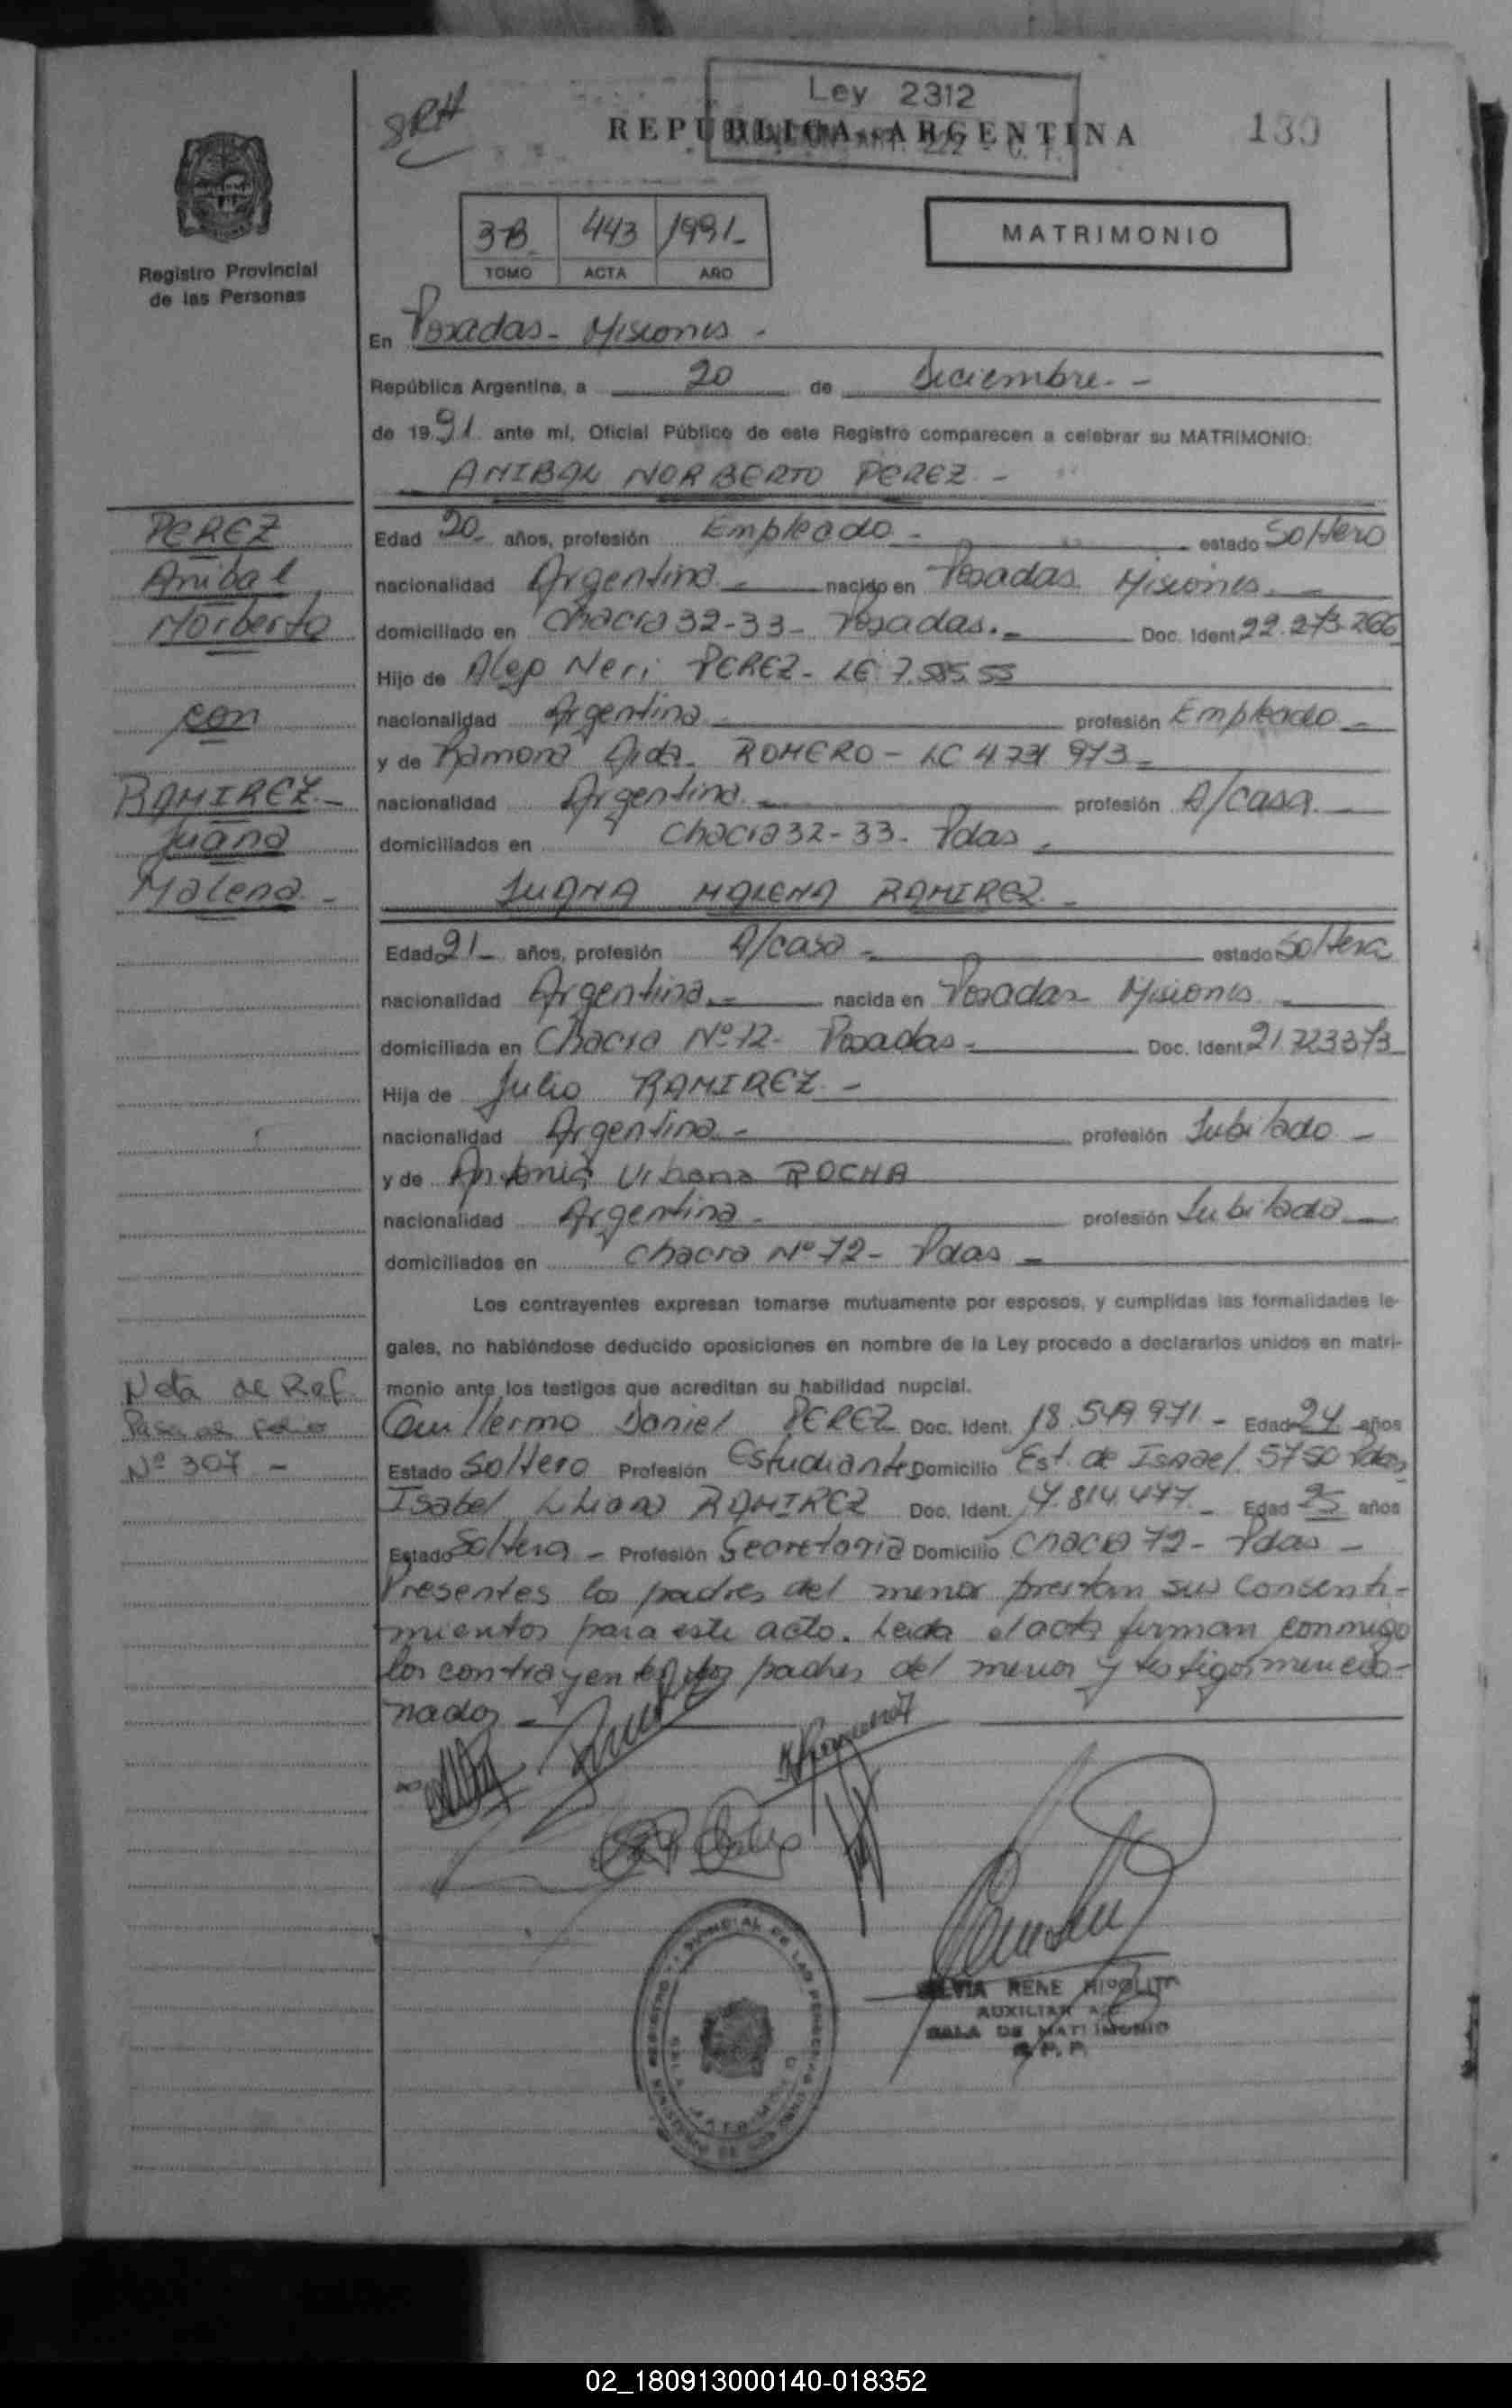 Ley 2312
REPUBLICA ARGENTINA
Registro Provincial
de las Personas
3-B 443 1991-
TOMO ACTA AÑO
MATRIMONIO
En Posadas - Misiones -
República Argentina, a 20 de Diciembre - -
de 1991 ante mi, Oficial Público de este Registro comparecen a celebrar su MATRIMONIO:
ANIBAL NORBERTO PEREZ -
PEREZ
Anibal
Norberto
con
RAMIREZ -
Juana
Malena -
Edad 20 años, profesión Empleado - estado Soltero
nacionalidad Argentina - nacido en Posadas Misiones -
domiciliado en Chacra 32-33 - Posadas. - Doc. Ident. 22.273.266
Hijo de Alejo Neri PEREZ - LE
nacionalidad Argentina - profesión Empleado -
y de Ramona Aida ROMERO - LC
nacionalidad Argentina - profesión A/casa -
domiciliados en Chacra 32-33 - Pdas -
JUANA MALENA RAMIREZ -
Edad 21 - años, profesión A/casa - estado Soltera
nacionalidad Argentina - nacida en Posadas Misiones -
domiciliada en Chacra Nº 72 - Posadas - Doc. Ident. 21.723373
Hija de Julio RAMIREZ -
nacionalidad Argentina - profesión Jubilado -
y de Antonia Urbana ROCHA
nacionalidad Argentina - profesión Jubilada -
domiciliados en Chacra Nº 72 - Pdas -
Los contrayentes expresan tomarse mutuamente por esposos, y cumplidas las formalidades le-
gales, no habiéndose deducido oposiciones en nombre de la Ley procedo a declararlos unidos en matri-
monio ante los testigos que acreditan su habilidad nupcial.
Nota de Ref.
Pasa al folio
Nº 307 -
Guillermo Daniel PEREZ Doc. Ident. 18.549.971 - Edad 24 años
Estado Soltero Profesión Estudiante Domicilio Est. de Israel 5750 Pdas
Isabel Liliana RAMIREZ Doc. Ident. Edad 25 años
Estado Soltera - Profesión Secretaria Domicilio Chacra 72 - Pdas -
Presentes los padres del menor prestan sus consenti-
mientos para este acto. Leida el acta firman conmigo
los contrayentes, los padres del menor y testigos mencio-
nados -
SILVIA RENE HIPOLITT
AUXILIAR
SALA DE MATRIMONIO
R.P.P.
02_180913000140-018352